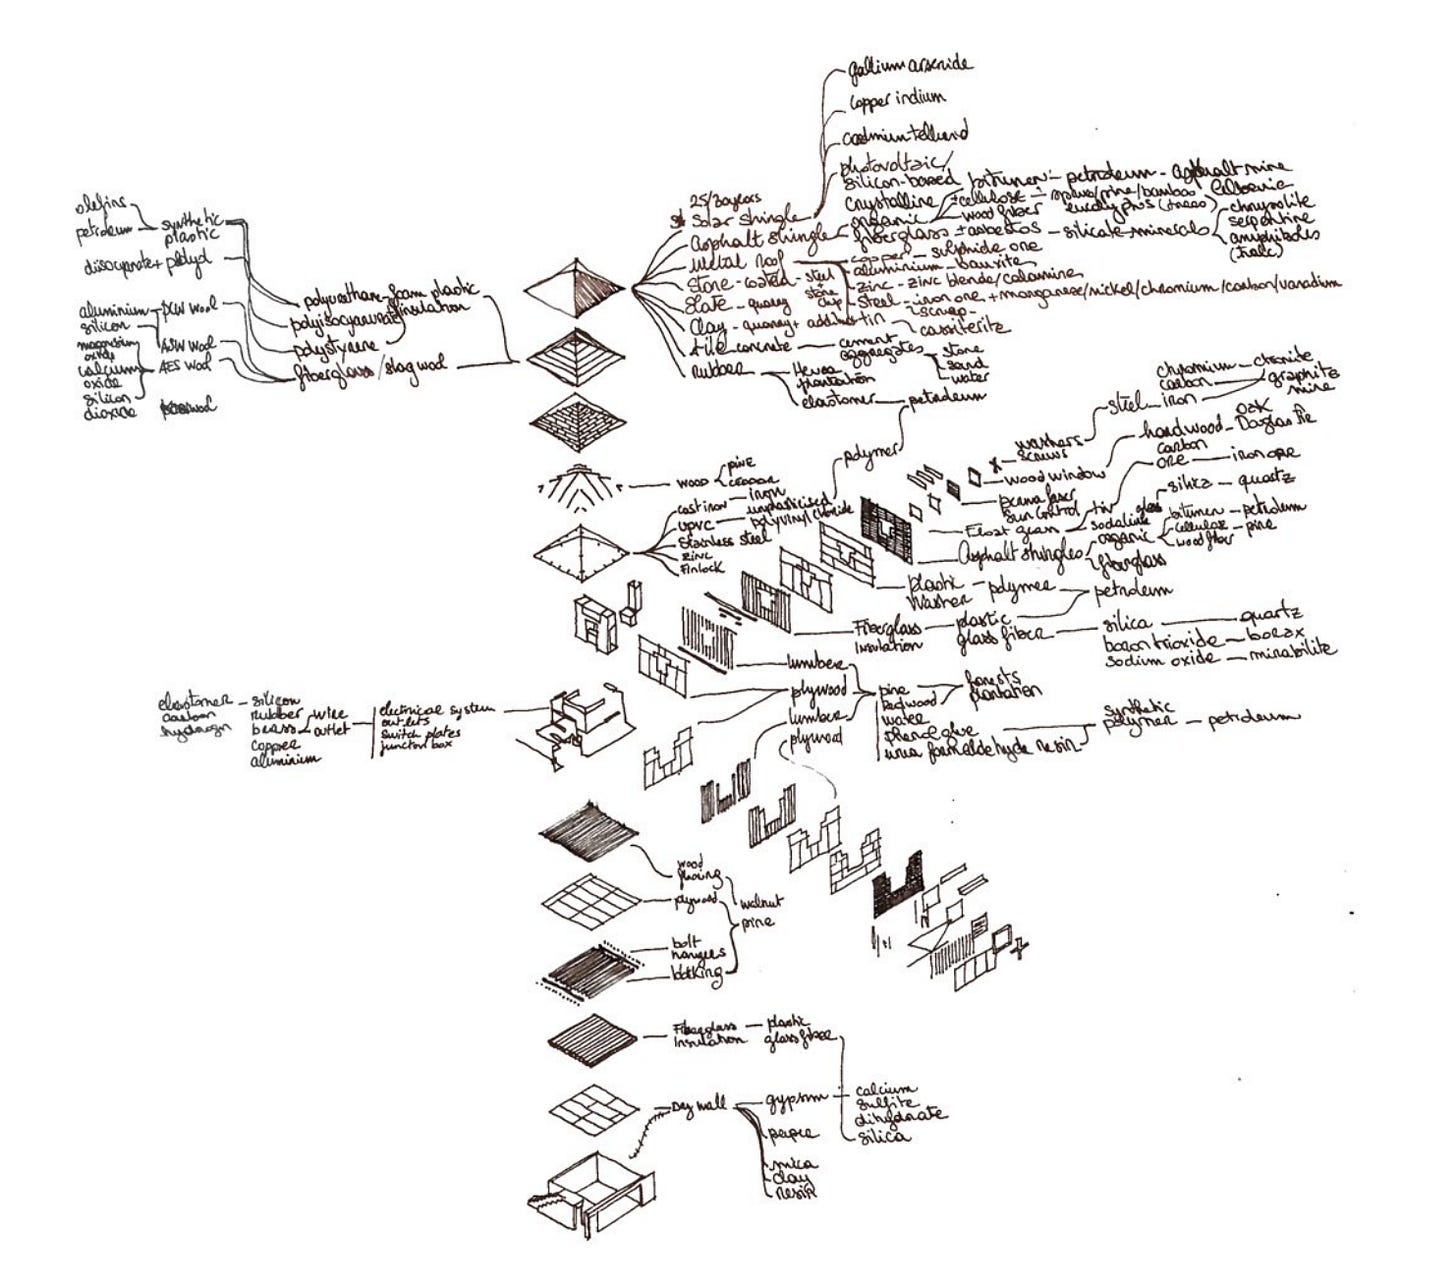 gallium arsenide
copper indium
cadmium tellurid
photovoltaic/
silicon-based
crystalline
organic
25/30 years
solar shingle
asphalt shingle
fiberglass + asbestos - silicate minerals
bitumen - petroleum - asphalt mine
+ cellulose - spruce/pine/bamboo
wood fiber
eucalyptus (trees)
chrysolite
serpentine
amphiboles
metal roof
copper - sulphide ore
aluminium - bauxite
zinc - zinc blende/calamine
steel - iron ore + manganese/nickel/chromium/carbon/vanadium
scrap
tin
cassiterite
stone-coated - steel
stone
chip
slate - quarry
clay - quarry +
tile - concrete - cement
aggregates
stone
sand
water
rubber
Hevea
plantation
elastomer - petroleum
polymer
olefins
petroleum
synthetic
plastic
diisocyanate +
aluminium
silicon
magnesium
oxide
calcium
oxide
silicon
dioxide
PCW wool
ASW wool
AES wool
polyurethane-foam plastic
insulation
polyisocyanurate
polystyrene
fiberglass/slag wool
wood
pine
cedar
cast iron - iron
upvc - unplasticised
polyvinyl chloride
stainless steel
zinc
Finlock
washers
screws
steel - iron
chromium - chromite
carbon
graphite
mine
wood window
hardwood - oak
Douglas fir
carbon
ore - iron ore
sun control
tin
Float glass
silica - quartz
soda lime
Asphalt shingles
organic
bitumen - petroleum
cellulose - pine
wood fiber
fiberglass
plastic
washer - polymer
petroleum
Fiberglass
Insulation
plastic
glass fiber
silica - quartz
boron trioxide - borax
sodium oxide - mirabilite
lumber
plywood
lumber
plywood
pine
redwood
water
phenol glue
urea formaldehyde resin
forests
plantation
synthetic
polymer - petroleum
elastomer - silicon
carbon
hydrogen
rubber
brass
copper
aluminium
wire
outlet
electrical system
outlets
switch plates
junction box
wood
flooring
plywood
walnut
pine
bolt
hangers
blocking
Fiberglass
Insulation
plastic
glass fiber
Dry wall
gypsum
calcium
sulfite
dihydrate
silica
paper
mica
clay
resin